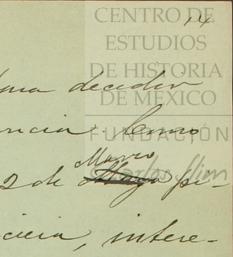 14
CENTRO DE
ESTUDIOS
DE HISTORIA
DE MÉXICO
FUNDACIÓN
Carlos Slim
decidir
encia. Como
Marzo
2 de Mayo pi-
intere-